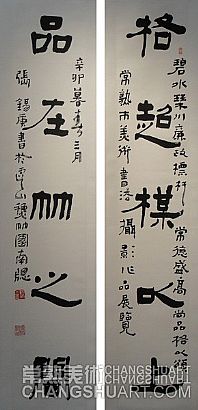 格超楳以上
碧水琴川廉政標杆 常德盛高尚品格以頌
常熟市美術書法攝影作品展覽
品在竹之間
辛卯暮春三月
張錫庚書於虞山竹園南牕
常熟美術
CHANGSHUART.COM